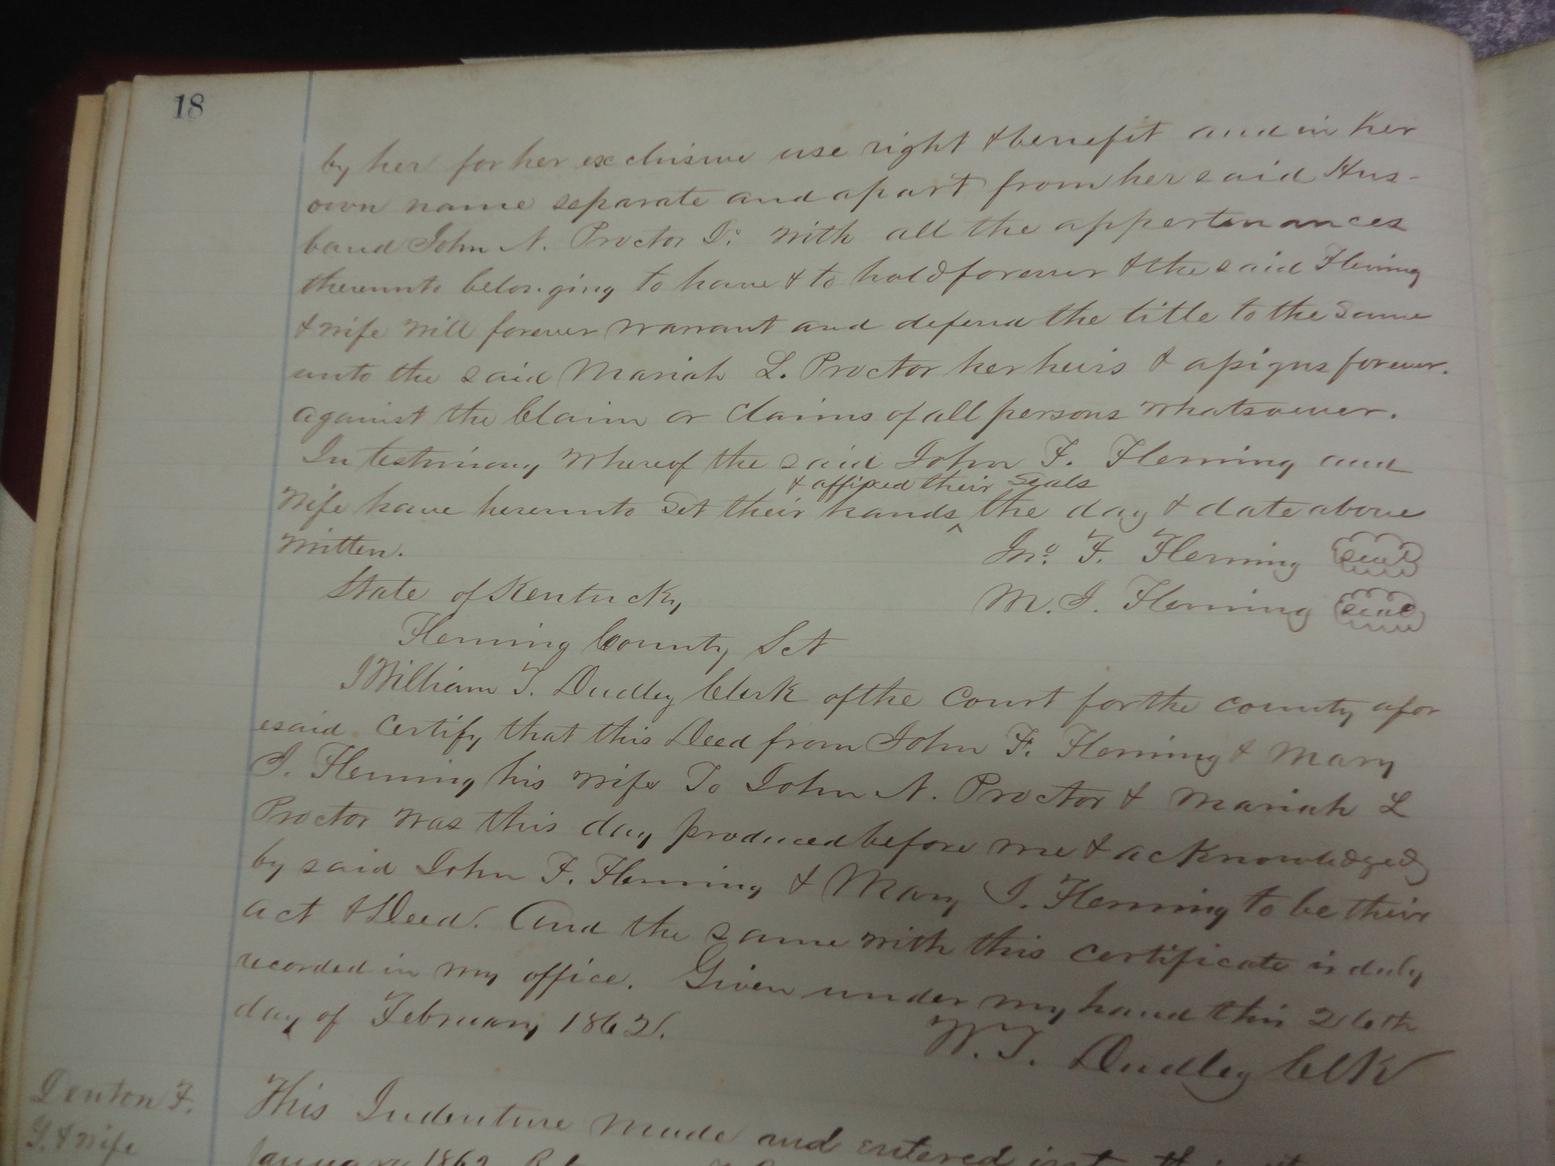 18
by her for her exclusive use right & benefit and in her
own name separate and apart from her said Hus-
band John N. Proctor Jr. with all the appertenances
thereunto belonging to have & to hold forever & the said Fleming
& wife will forever warrant and defend the title to the same
unto the said Mariah L. Proctor her heirs & assigns forever.
against the Claim or Claims of all persons whatsoever.
In testimony whereof the said John F. Fleming and
& affixed their Seals
wife have hereunto set their hands ^ the day & date above
written.
Jno. F. Fleming seal
State of Kentucky,
M. I. Fleming seal
Fleming County Sct
I William T. Dudley Clerk of the Court for the county afor
esaid certify that this Deed from John F. Fleming & Mary
I. Fleming his wife To John N. Proctor & Mariah L
Proctor was this day produced before me & acknowledged
by said John F. Fleming & Mary I. Fleming to be their
act & Deed. And the same with this certificate is duly
recorded in my office. Given under my hand this 26th
day of February 1862.
W. T. Dudley Clk
Denton F.
This Indenture made and entered into this
G. & wife
January 1862